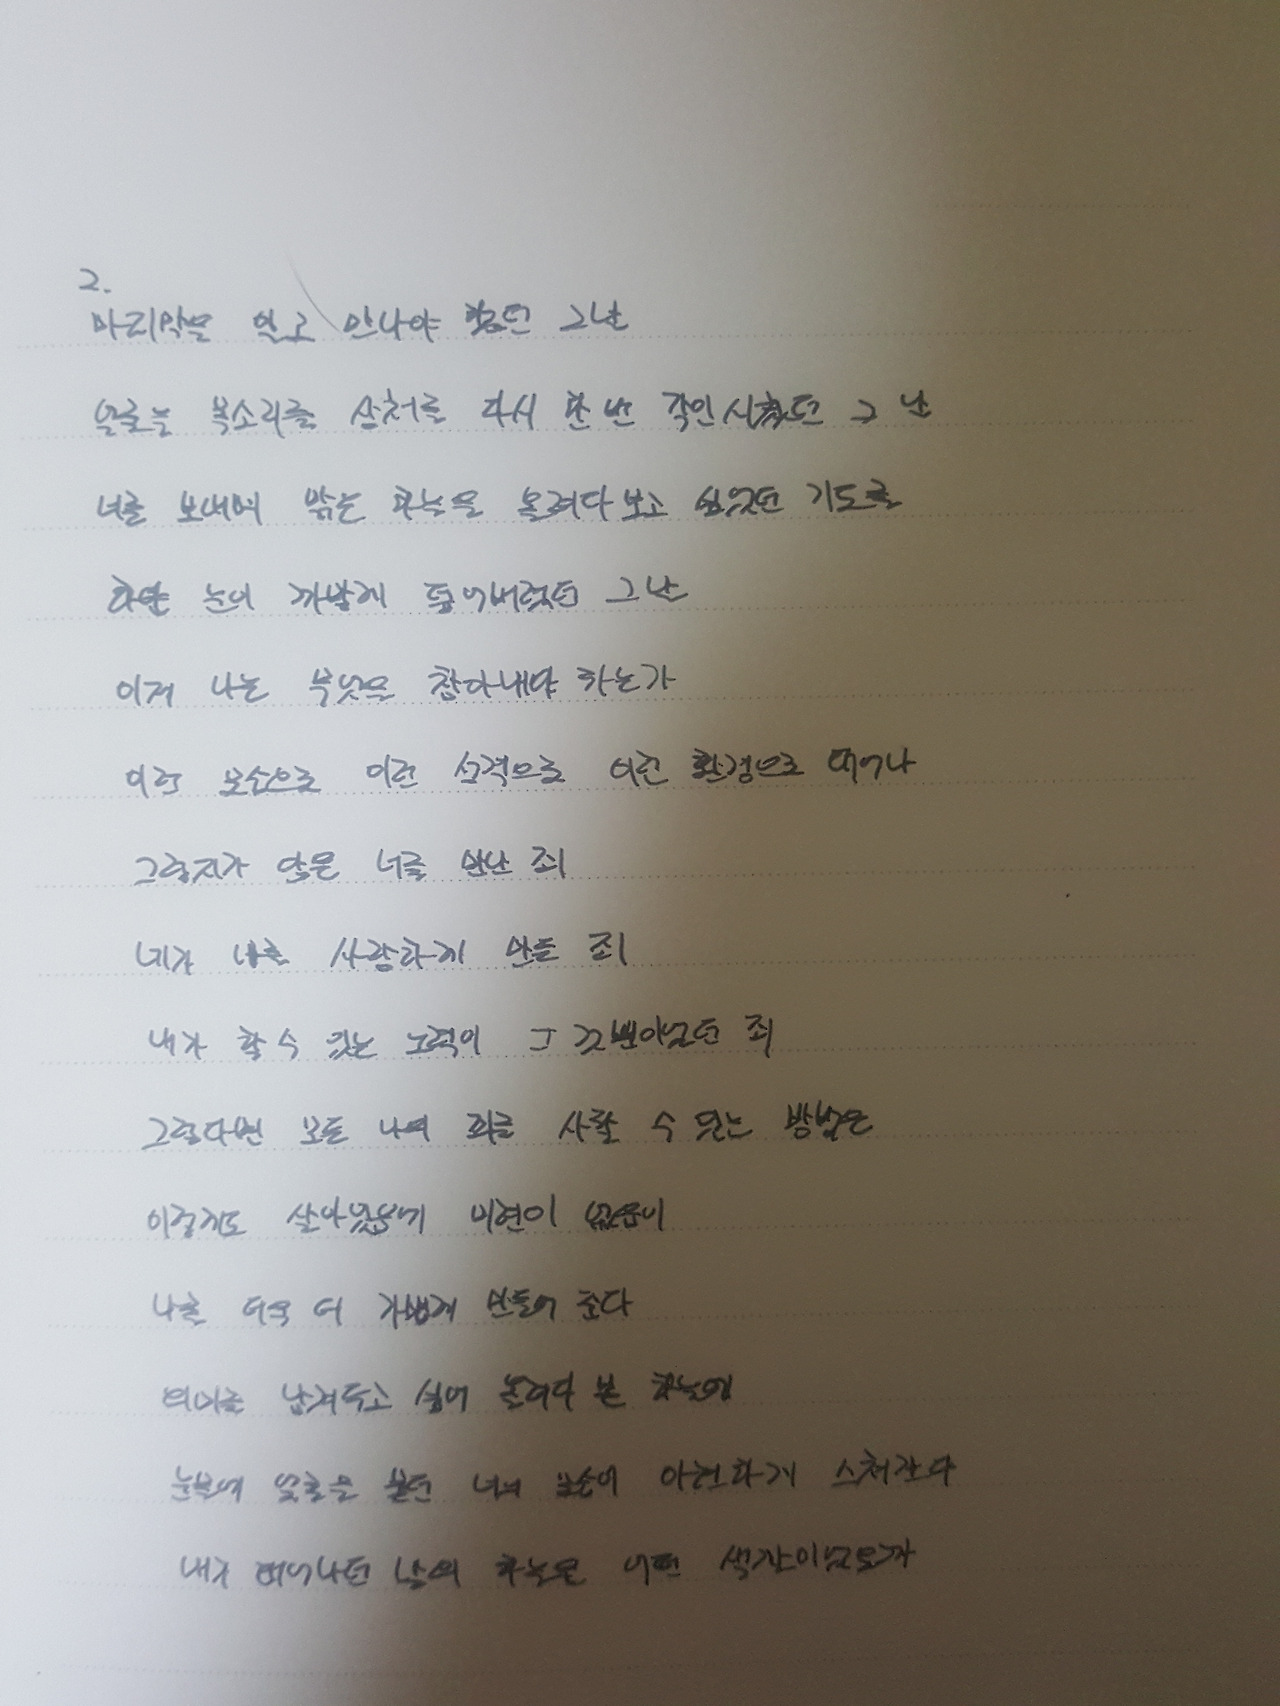 2.
마지막을 알고 만나야 했던 그날
얼굴을 목소리를 상처를 다시 한 번 각인시켰던 그 날
너를 보내며 맑은 하늘을 올려다보고 싶었던 기도를
하얀 눈이 까맣게 덮어버렸던 그 날
이제 나는 무엇을 참아내야 하는가
이런 모습으로 이런 성격으로 이런 환경으로 태어나
그렇지가 않은 너를 만난 죄
네가 나를 사랑하게 만든 죄
내가 할 수 있는 노력이 고 것뿐이었던 죄
그렇다면 모든 나의 죄를 사할 수 있는 방법은
이렇게도 살아있음에 미련이 없음이
나를 더욱 더 가볍게 만들어 준다
의미를 남겨두고 싶어 올려다 본 하늘에
눈부셔 얼굴을 붉힌 너의 모습이 아련하게 스쳐간다
내가 태어나던 날의 하늘은 어떤 색깔이었을까